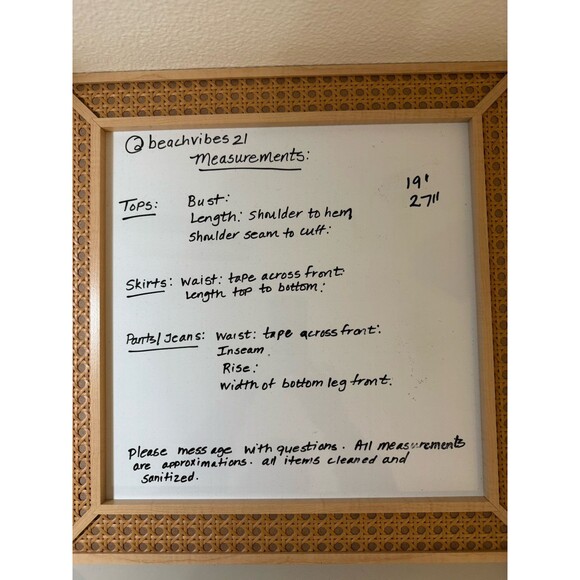 @beachvibes21
Measurements:
Tops: Bust: 19"
Length: Shoulder to hem 27"
shoulder seam to cuff:
Skirts: Waist: tape across front:
Length top to bottom:
Pants/Jeans: Waist: tape across front:
Inseam.
Rise:
width of bottom leg front.
Please message with questions. All measurements
are approximations. all items cleaned and
sanitized.